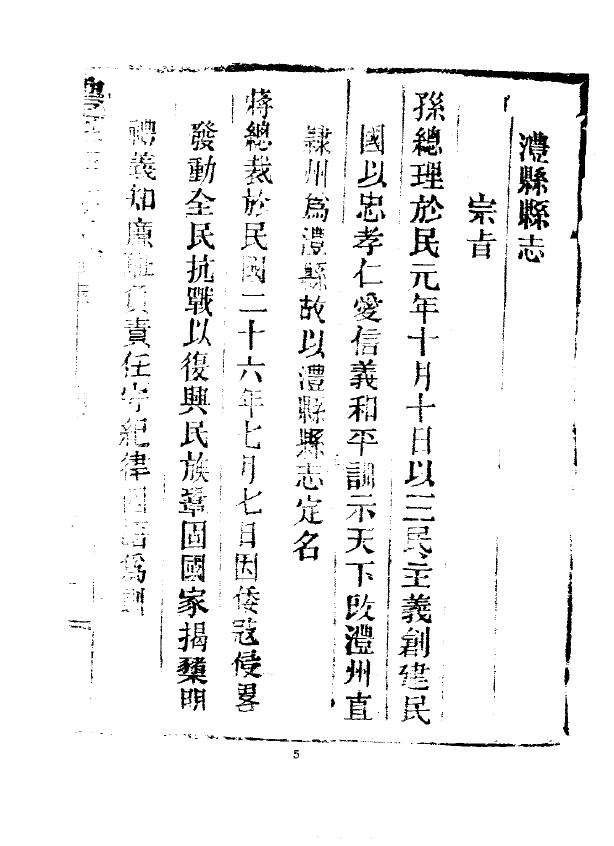 澧縣縣志
宗旨
孫總理於民元年十月十日以三民主義創建民
國以忠孝仁愛信義和平訓示天下改澧州直
隸州爲澧縣故以澧縣縣志定名
蔣總裁於民國二十六年七月七日因倭寇侵畧
發動全民抗戰以復興民族鞏固國家揭櫫明
禮義知廉恥負責任守紀律四語爲
5